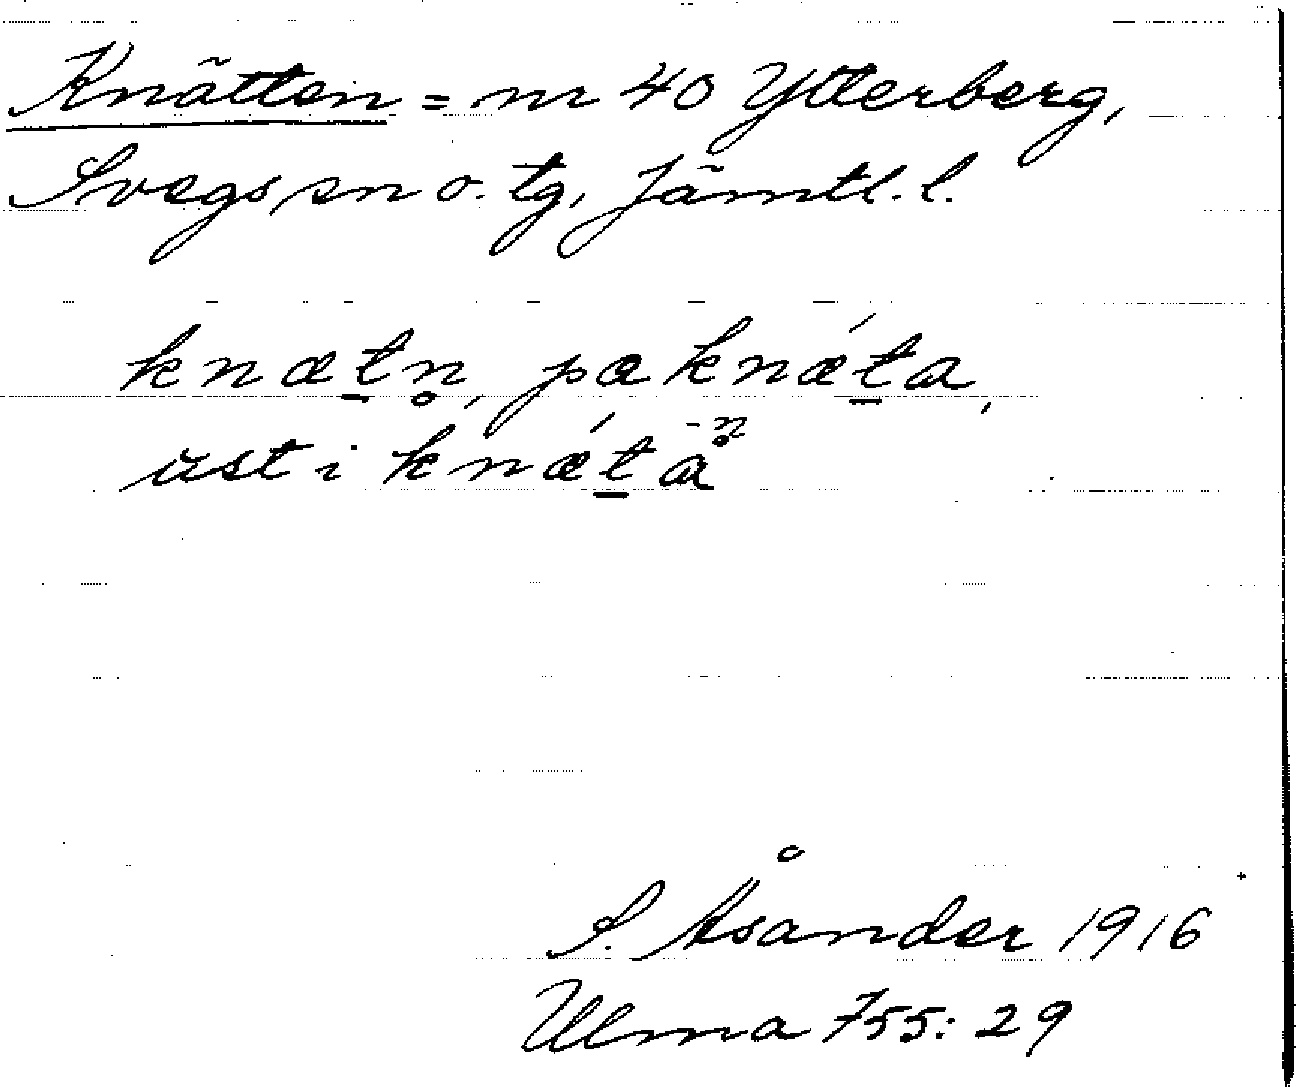 Knätten = nr 40 Ytterberg,
Svegs sn o. tg, Jämtl. l.
knæt̲n̥, pæ knǽt̲a,
ust i knǽt̲a n̥
S. Åsander 1916
Ulma 755: 29